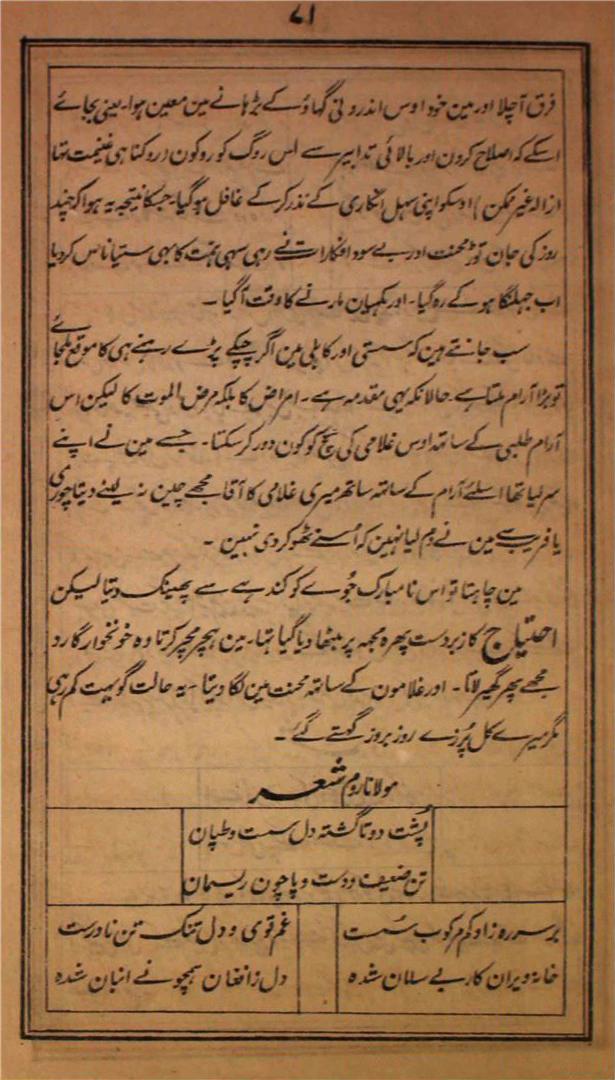 ۷۱
فرق آچلا اور مین خود اوس اندرونی گھاؤ کے بڑہانے مین معین ہوا۔ یعنی بجائے
اسکے کہ اصلاح کرون اور بالائی تدابیر سے اس روگ کو روکون (روکنا ہی غنیمت تہا
ازالہ غیر ممکن) اوسکو اپنی سہل انگاری کے نذر کر کے غافل ہوگیا۔ جسکا نتیجہ یہ ہوا کہ چند
روز کی جان توڑ محنت اور بے سود افکارات نے رہی سہی ہمت کا بہی ستیاناس کر دیا
اب جہلنگا ہو کے رہ گیا۔ اور مکہیان مارنے کا وقت آگیا ۔
سب جانتے ہین کہ سستی اور کاہلی مین اگر چپکے پڑے رہنے ہی کا موقع ملجائے
تو بڑا آرام ملتا ہے حالانکہ یہی مقدمہ ہے۔ امراض کا بلکہ مرض الموت کا لیکن اس
آرام طلبی کے ساتہہ اوس غلامی کی پچ کو کون دور کر سکتا۔ جسے مین نے اپنے
سر لیا تہا اسلئے آرام کے ساتہہ ساتہہ میری غلامی کا آقا مجھے چین نہ لینے دیتا چوری
یا فریب سے مین نے دم لیا نہین کہ اُسنے ٹھوکر دی نہین ۔
مین چاہتا تو اس نامبارک جُوے کو کندہے سے پھینک دیتا لیکن
احتیاج کا زبردست پہرہ مجہہ پر بیٹھا دیا گیا تہا۔ مین ہچر مچر کرتا وہ خونخوار گارد
مجھے پھر گھیر لاتا ۔ اور غلامون کے ساتہہ محنت مین لگا دیتا ۔ یہ حالت گو بہت کم رہی
مگر میرے کل پُرزے روز بروز گہستے گئے ۔
مولانا روم شعر
پُشت دوتا گشتہ دل سست و طپان
تن ضعیف و دست و پا چون ریسمان
بر سر رہ زاد کم مرکوب سُست
غم قوی و دل تنک تن نادرست
خانہ ویران کار بے سامان شدہ
دل ز افغان ہمچو نے انبان شدہ